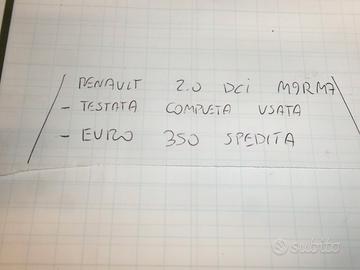 RENAULT 2.0 DCi M9RM7
- TESTATA COMPLETA USATA
- EURO 350 SPEDITA
subito